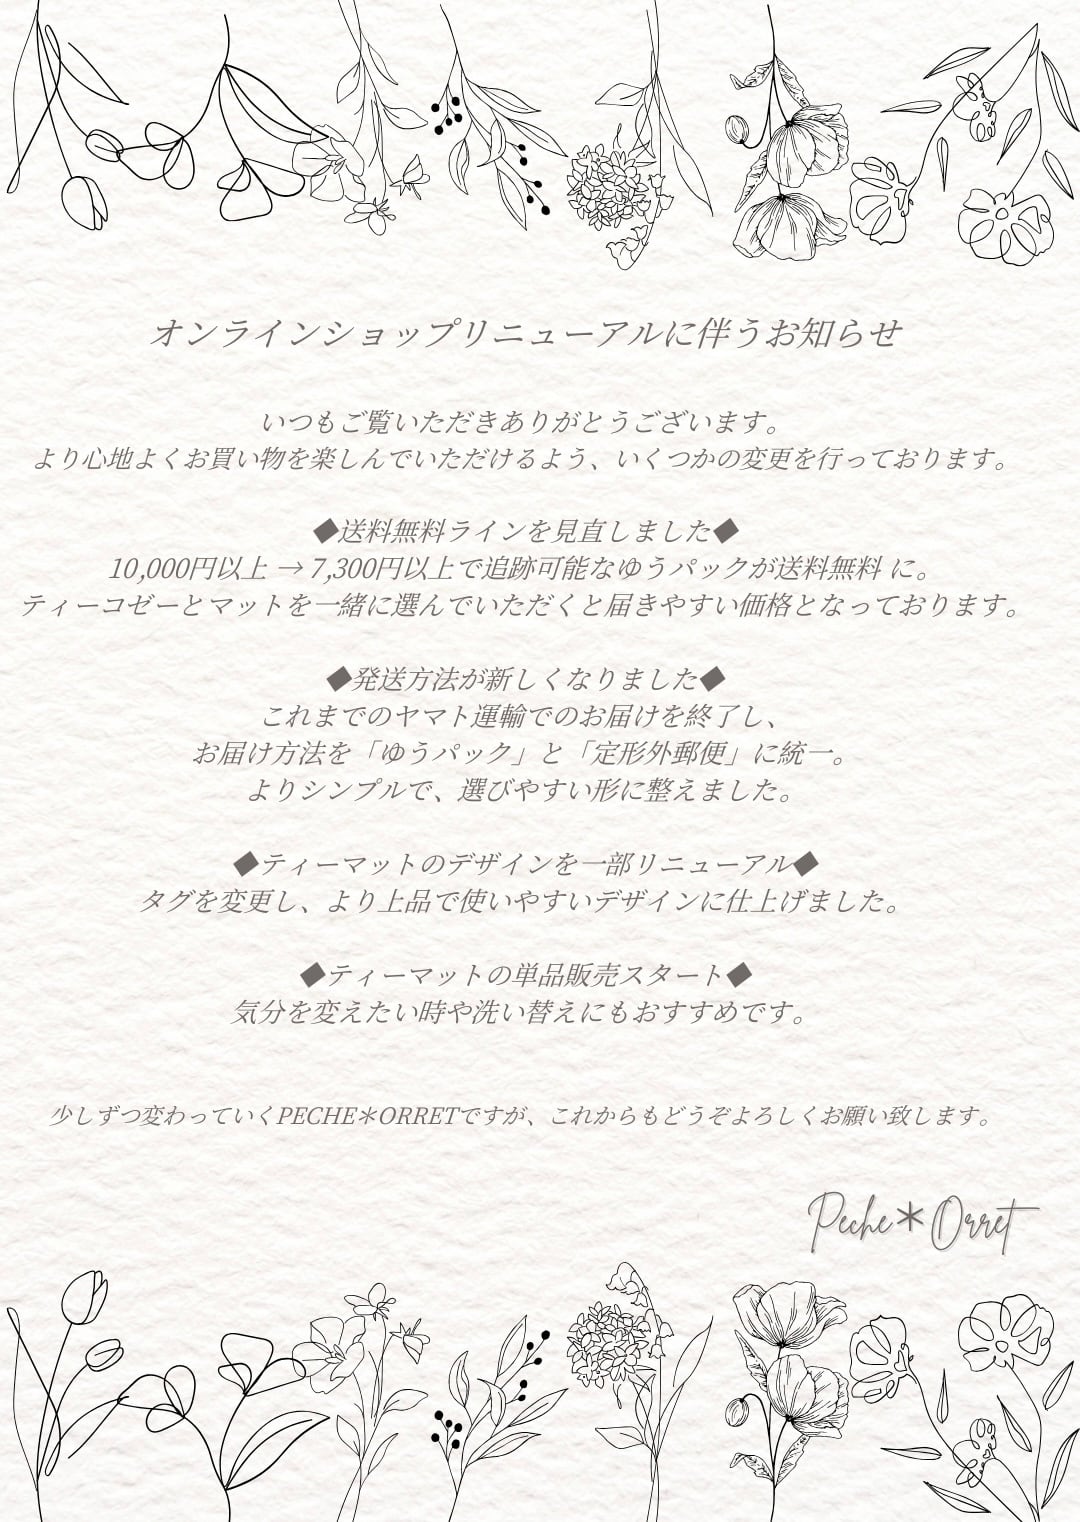 オンラインショップリニューアルに伴うお知らせ
いつもご覧いただきありがとうございます。
より心地よくお買い物を楽しんでいただけるよう、いくつかの変更を行っております。
◆送料無料ラインを見直しました◆
10,000円以上 → 7,300円以上で追跡可能なゆうパックが送料無料 に。
ティーコゼーとマットを一緒に選んでいただくと届きやすい価格となっております。
◆発送方法が新しくなりました◆
これまでのヤマト運輸でのお届けを終了し、
お届け方法を「ゆうパック」と「定形外郵便」に統一。
よりシンプルで、選びやすい形に整えました。
◆ティーマットのデザインを一部リニューアル◆
タグを変更し、より上品で使いやすいデザインに仕上げました。
◆ティーマットの単品販売スタート◆
気分を変えたい時や洗い替えにもおすすめです。
少しずつ変わっていくPECHE＊ORRETですが、これからもどうぞよろしくお願い致します。
Peche＊Orret